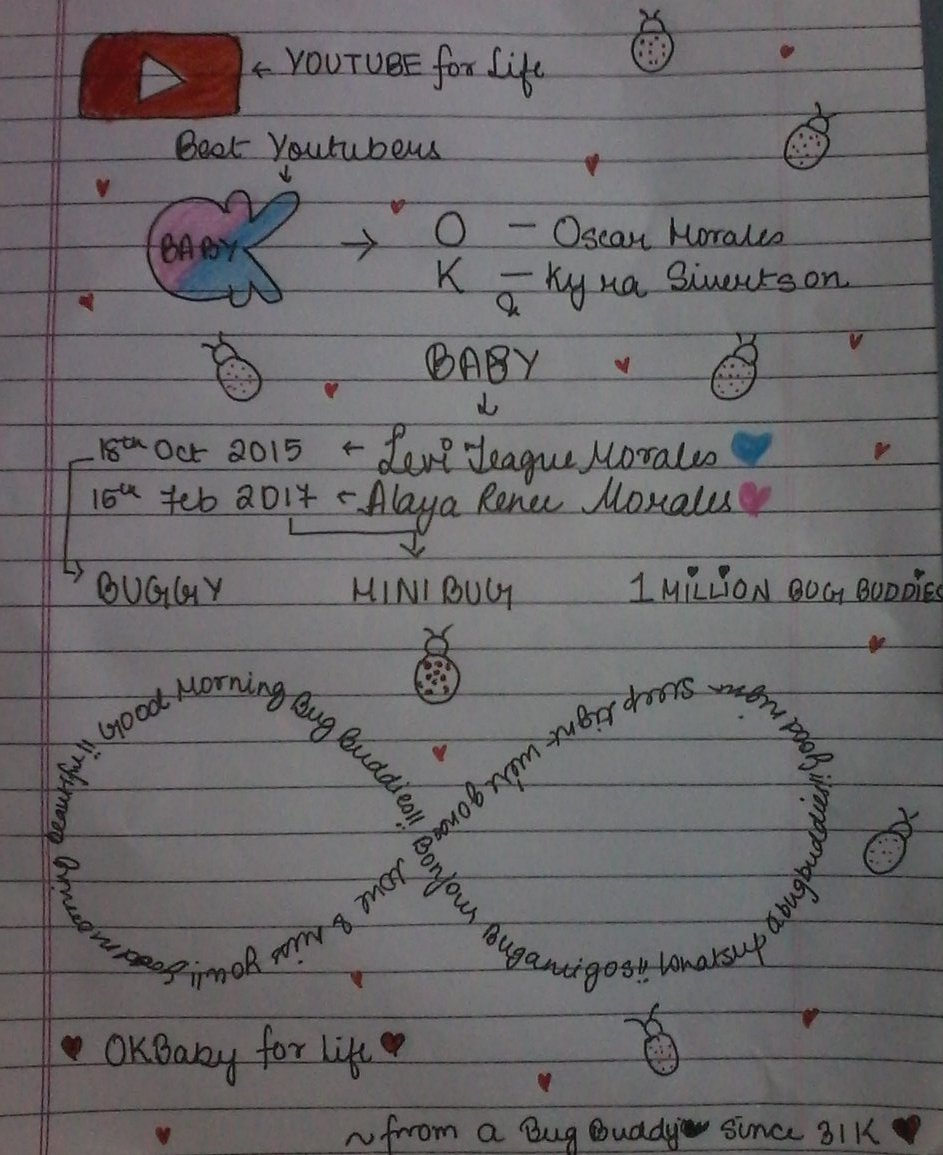 ← YOUTUBE for Life
Best Youtubers
↓
BABY → O — Oscar Morales
K — Kyra Sivertson
&
BABY
↓
18th Oct 2015 ← Levi Teague Morales
16th Feb 2017 ← Alaya Renee Morales
BUGGY MINI BUG 1 MILLION BUG BUDDIES
Good Morning Bug Buddies!! Bonjour Bugamigos!! Whatsup abugbuddies!! good night sleep tight we're gonna love & miss you!! good morning beautiful!!
OKBaby for life
~from a Bug Buddy since 31K